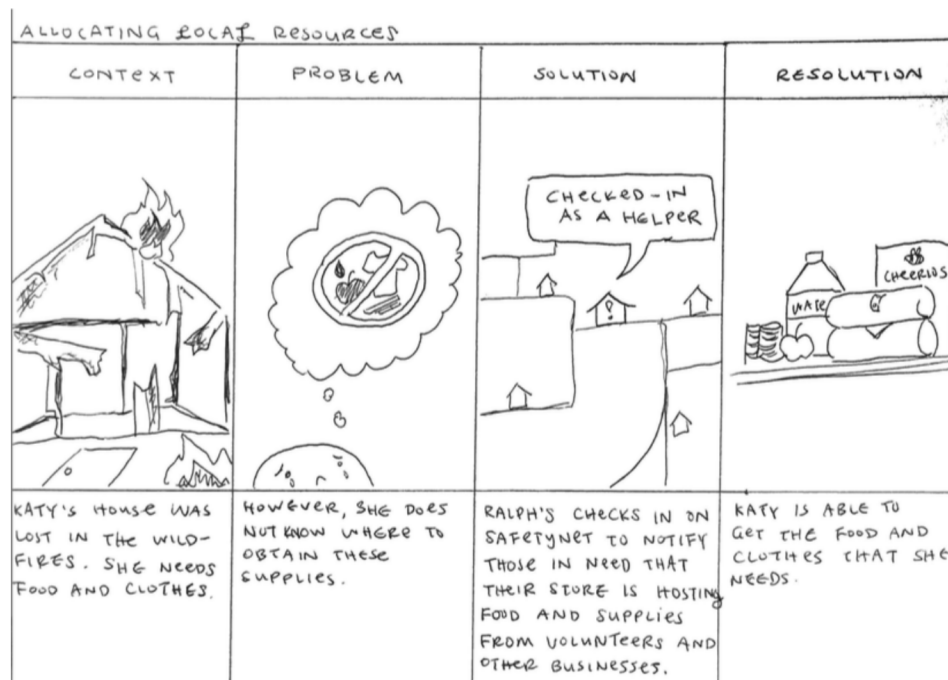 ALLOCATING LOCAL RESOURCES
CONTEXT
PROBLEM
SOLUTION
RESOLUTION
CHECKED-IN
AS A HELPER
!
WATE
CHEERIOS
KATY'S HOUSE WAS
LOST IN THE WILD-
FIRES. SHE NEEDS
FOOD AND CLOTHES.
HOWEVER, SHE DOES
NOT KNOW WHERE TO
OBTAIN THESE
SUPPLIES.
RALPH'S CHECKS IN ON
SAFETYNET TO NOTIFY
THOSE IN NEED THAT
THEIR STORE IS HOSTING
FOOD AND SUPPLIES
FROM VOLUNTEERS AND
OTHER BUSINESSES.
KATY IS ABLE TO
GET THE FOOD AND
CLOTHES THAT SHE
NEEDS.